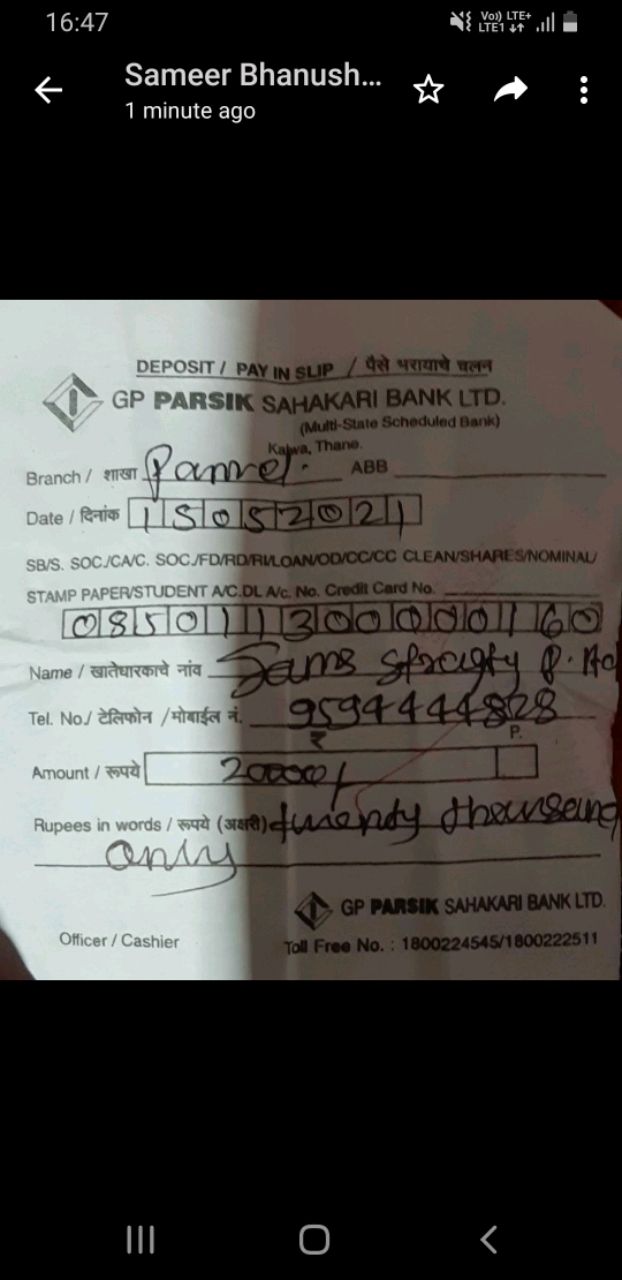 16:47
Vo)) LTE+
LTE1
Sameer Bhanush...
1 minute ago
DEPOSIT / PAY IN SLIP / पैसे भरायाचे चलन
GP PARSIK SAHAKARI BANK LTD.
(Multi-State Scheduled Bank)
Kalwa, Thane.
Branch / शाखा Panvel. ABB
Date / दिनांक 15052021
SB/S. SOC./CA/C. SOC./FD/RD/RI/LOAN/OD/CC/CC CLEAN/SHARES/NOMINAL/
STAMP PAPER/STUDENT A/C.DL A/c. No. Credit Card No.
085011300000160
Name / खातेधारकाचे नांव Sams P.
Tel. No./ टेलिफोन /मोबाईल नं. 9594444828
₹ P.
Amount / रूपये 20000/
Rupees in words / रूपये (अक्षरी) twenty thousand
only
GP PARSIK SAHAKARI BANK LTD.
Officer / Cashier
Toll Free No. : 1800224545/1800222511